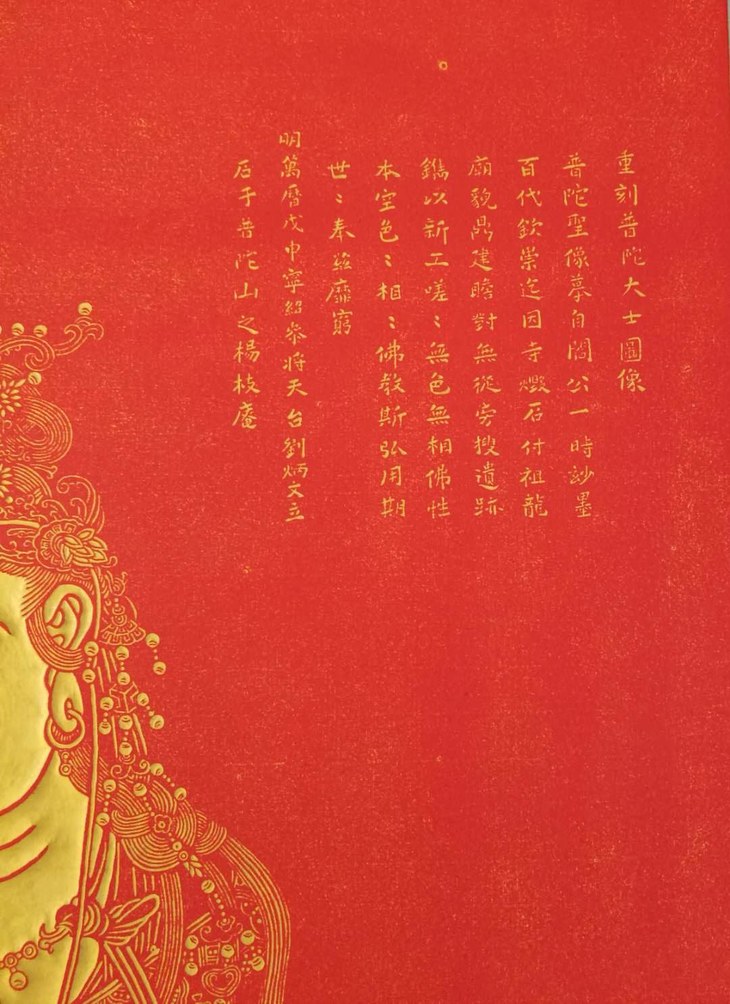 重刻普陀大士圖像
普陀聖像摹自閻公一時玅墨
百代欽崇迄因寺燬石付祖龍
廟貌鼎建瞻對無從旁搜遺跡
鐫以新工嗟〻無色無相佛性
本空色〻相〻佛教斯弘用期
世〻奉茲靡窮
明萬曆戊申寧紹叅將天台劉炳文立
石于普陀山之楊枝庵